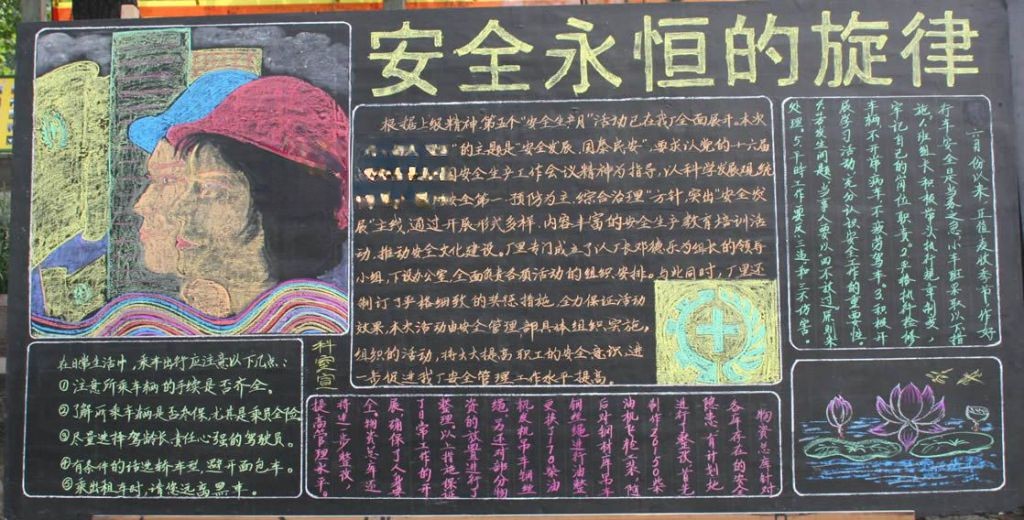 安全永恒的旋律
根据上级精神,第五个"安全生产月"活动已在我厂全面展开。本次
"的主题是"安全发展、国泰民安"。要求以党的十六届
安全生产工作会议精神为指导,以科学发展观统
安全第一、预防为主、综合治理"方针,突出"安全发
展"主线,通过开展形式多样、内容丰富的安全生产教育培训活
动,推动安全文化建设。厂里专门成立了以厂长邓德乐为组长的领导
小组,下设办公室,全面负责各项活动的组织、安排。与此同时,厂里还
制订了严格细致的奖惩措施,全力保证活动
效果。本次活动由安全管理部具体组织、实施,
组织的活动,将大大提高职工的安全意识,进
一步促进我厂安全管理工作水平提高。
六月份以来,正值夏收季节,作好
行车安全是当务之急,小车班采取以下措
施:1.班组长积极带头执行规章制度,
牢记自己的岗位职责。2.严格执行检修
车辆不开带病车,不疲劳驾车。3.积极开
展学习活动,充分认识安全工作的重要性。
4.若发生问题,当事人要以"四不放过"原则来
处理。5.平时工作要反三违和三不伤害。
科室宣
在日常生活中,乘车出行应注意以下几点:
①注意所乘车辆的手续是否齐全。
②了解所乘车辆是否参保,尤其是乘员全险
③尽量选择驾龄长、责任心强的驾驶员。
④有条件的话选轿车型,避开面包车。
⑤乘出租车时,请您远离黑车。
物资总库针对
各库存在的安全
隐患,有计划地
进行整改,首先
制作
油桶
后对钢制吊车吊
钢绳进行油整
更换
机关的
绳,另还对部分物
资的放置进行了
整理,以上措施保证
了日常工作的开
展,确保了人身安
全,物资总库还
将进一步
提高管理水平。